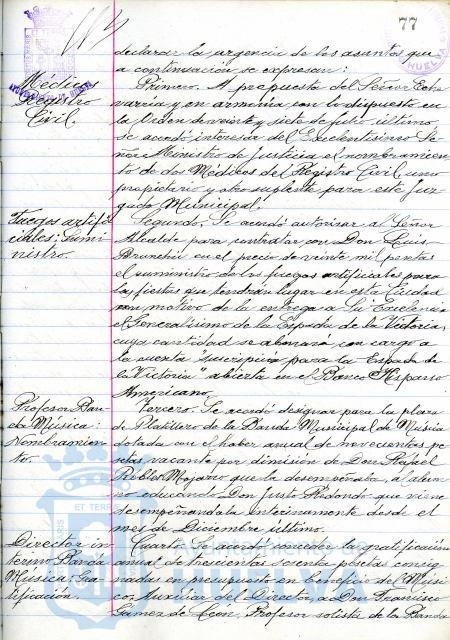 77
declarar la urgencia de los asuntos que
a continuación se expresan:
Médicos
Registro
Civil.
Primero. A propuesta del Señor Echa
varria y en armonía con lo dispuesto en
la Orden de veinte y siete de julio último
se acordó interesar del Excelentísimo Se
ñor Ministro de Justicia el nombramien
to de dos Médicos del Registro Civil, uno
propietario y otro suplente para este Juz
gado Municipal.
Fuegos artifi
ciales: Sumi
nistro.
Segundo. Se acordó autorizar al Señor
Alcalde para contratar con Don Luis
en el precio de veinte mil pesetas
el suministro de los fuegos artificiales para
las fiestas que tendrán lugar en esta Ciudad
con motivo de la entrega a Su Excelencia
el Generalísimo de la Espada de la Victoria,
cuya cantidad se abonará con cargo a
la cuenta "Suscripción para la Espada de
la Victoria" abierta en el Banco Hispano
Americano.
Profesor Ban
da Música:
Nombramien
to.
Tercero. Se acordó designar para la plaza
de Platillero de la Banda Municipal de Música
dotada con el haber anual de novecientas pe
setas, vacante por dimisión de Don Rafael
Robles Mojarro que la desempeñaba, al alum
no educando Don Justo Redondo que viene
desempeñandola interinamente desde el
mes de Diciembre último.
Director in
terino Banda
Música: Gra
tificación.
Cuarto. Se acordó conceder la gratificación
anual de trescientas sesenta pesetas consig
nadas en presupuesto en beneficio del Músi
co Auxiliar del Director, a Don Francisco
Gámez de León, Profesor solista de la Banda
ET TERR
Ayuntamiento de
HUELVA